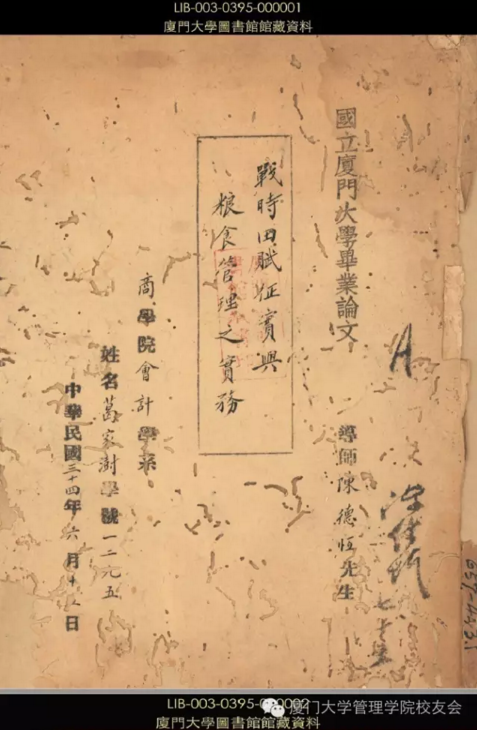 LIB-003-0395-000001
廈門大學圖書館館藏資料
國立廈門大學畢業論文
A
導師陳德恒先生
戰時田賦征實與
粮食管理之實務
商學院會計學系
姓名葛家澍學號一二九五
中華民國三十四年六月十日
LIB-003-0395-000002
廈門大學圖書館館藏資料
厦门大学管理学院校友会